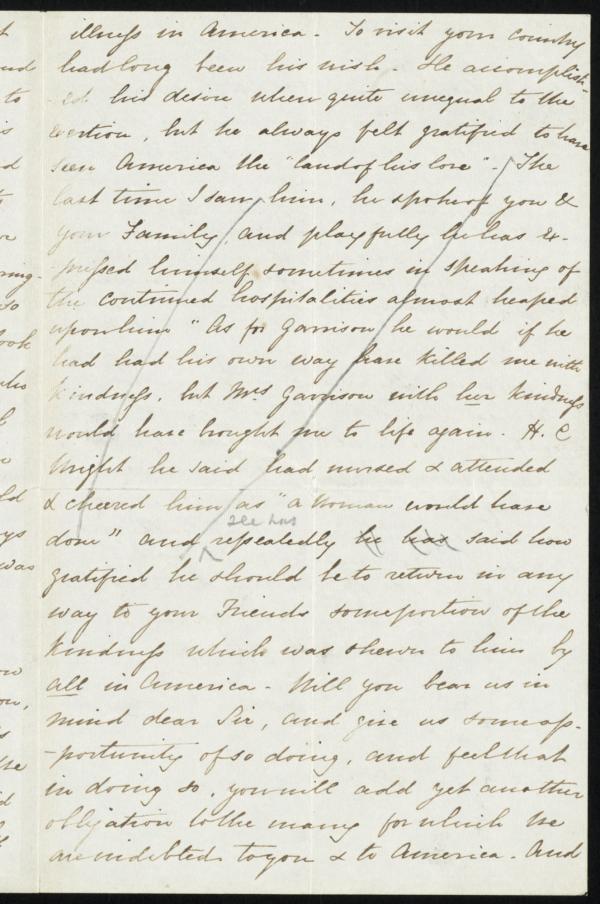 illness in America - To visit your Country
had long been his wish - He accomplish-
-ed his desire when quite unequal to the
exertion, but he always felt gratified to have
seen America the "land of his love" - The
last time I saw him, he spoke of you &
your Family, and playfully he has ex-
-pressed himself sometimes in speaking of
the continued hospitalities almost heaped
upon him "As for Garrison he would if he
had had his own way have killed me with
kindness, but Mrs Garrison with her kindness
would have brought me to life again - H. C
Wright he said had nursed & attended
& cheered him as "a Woman would have
done" and repeatedly he has said how
he has
gratified he should be to return in any
way to your Friends some portion of the
kindness which was shewn to him by
all in America - Will you bear us in
mind dear Sir, and give us some op-
-portunity of so doing, and feel that
in doing so, you will add yet another
obligation to the many for which we
are indebted to you & to America - And